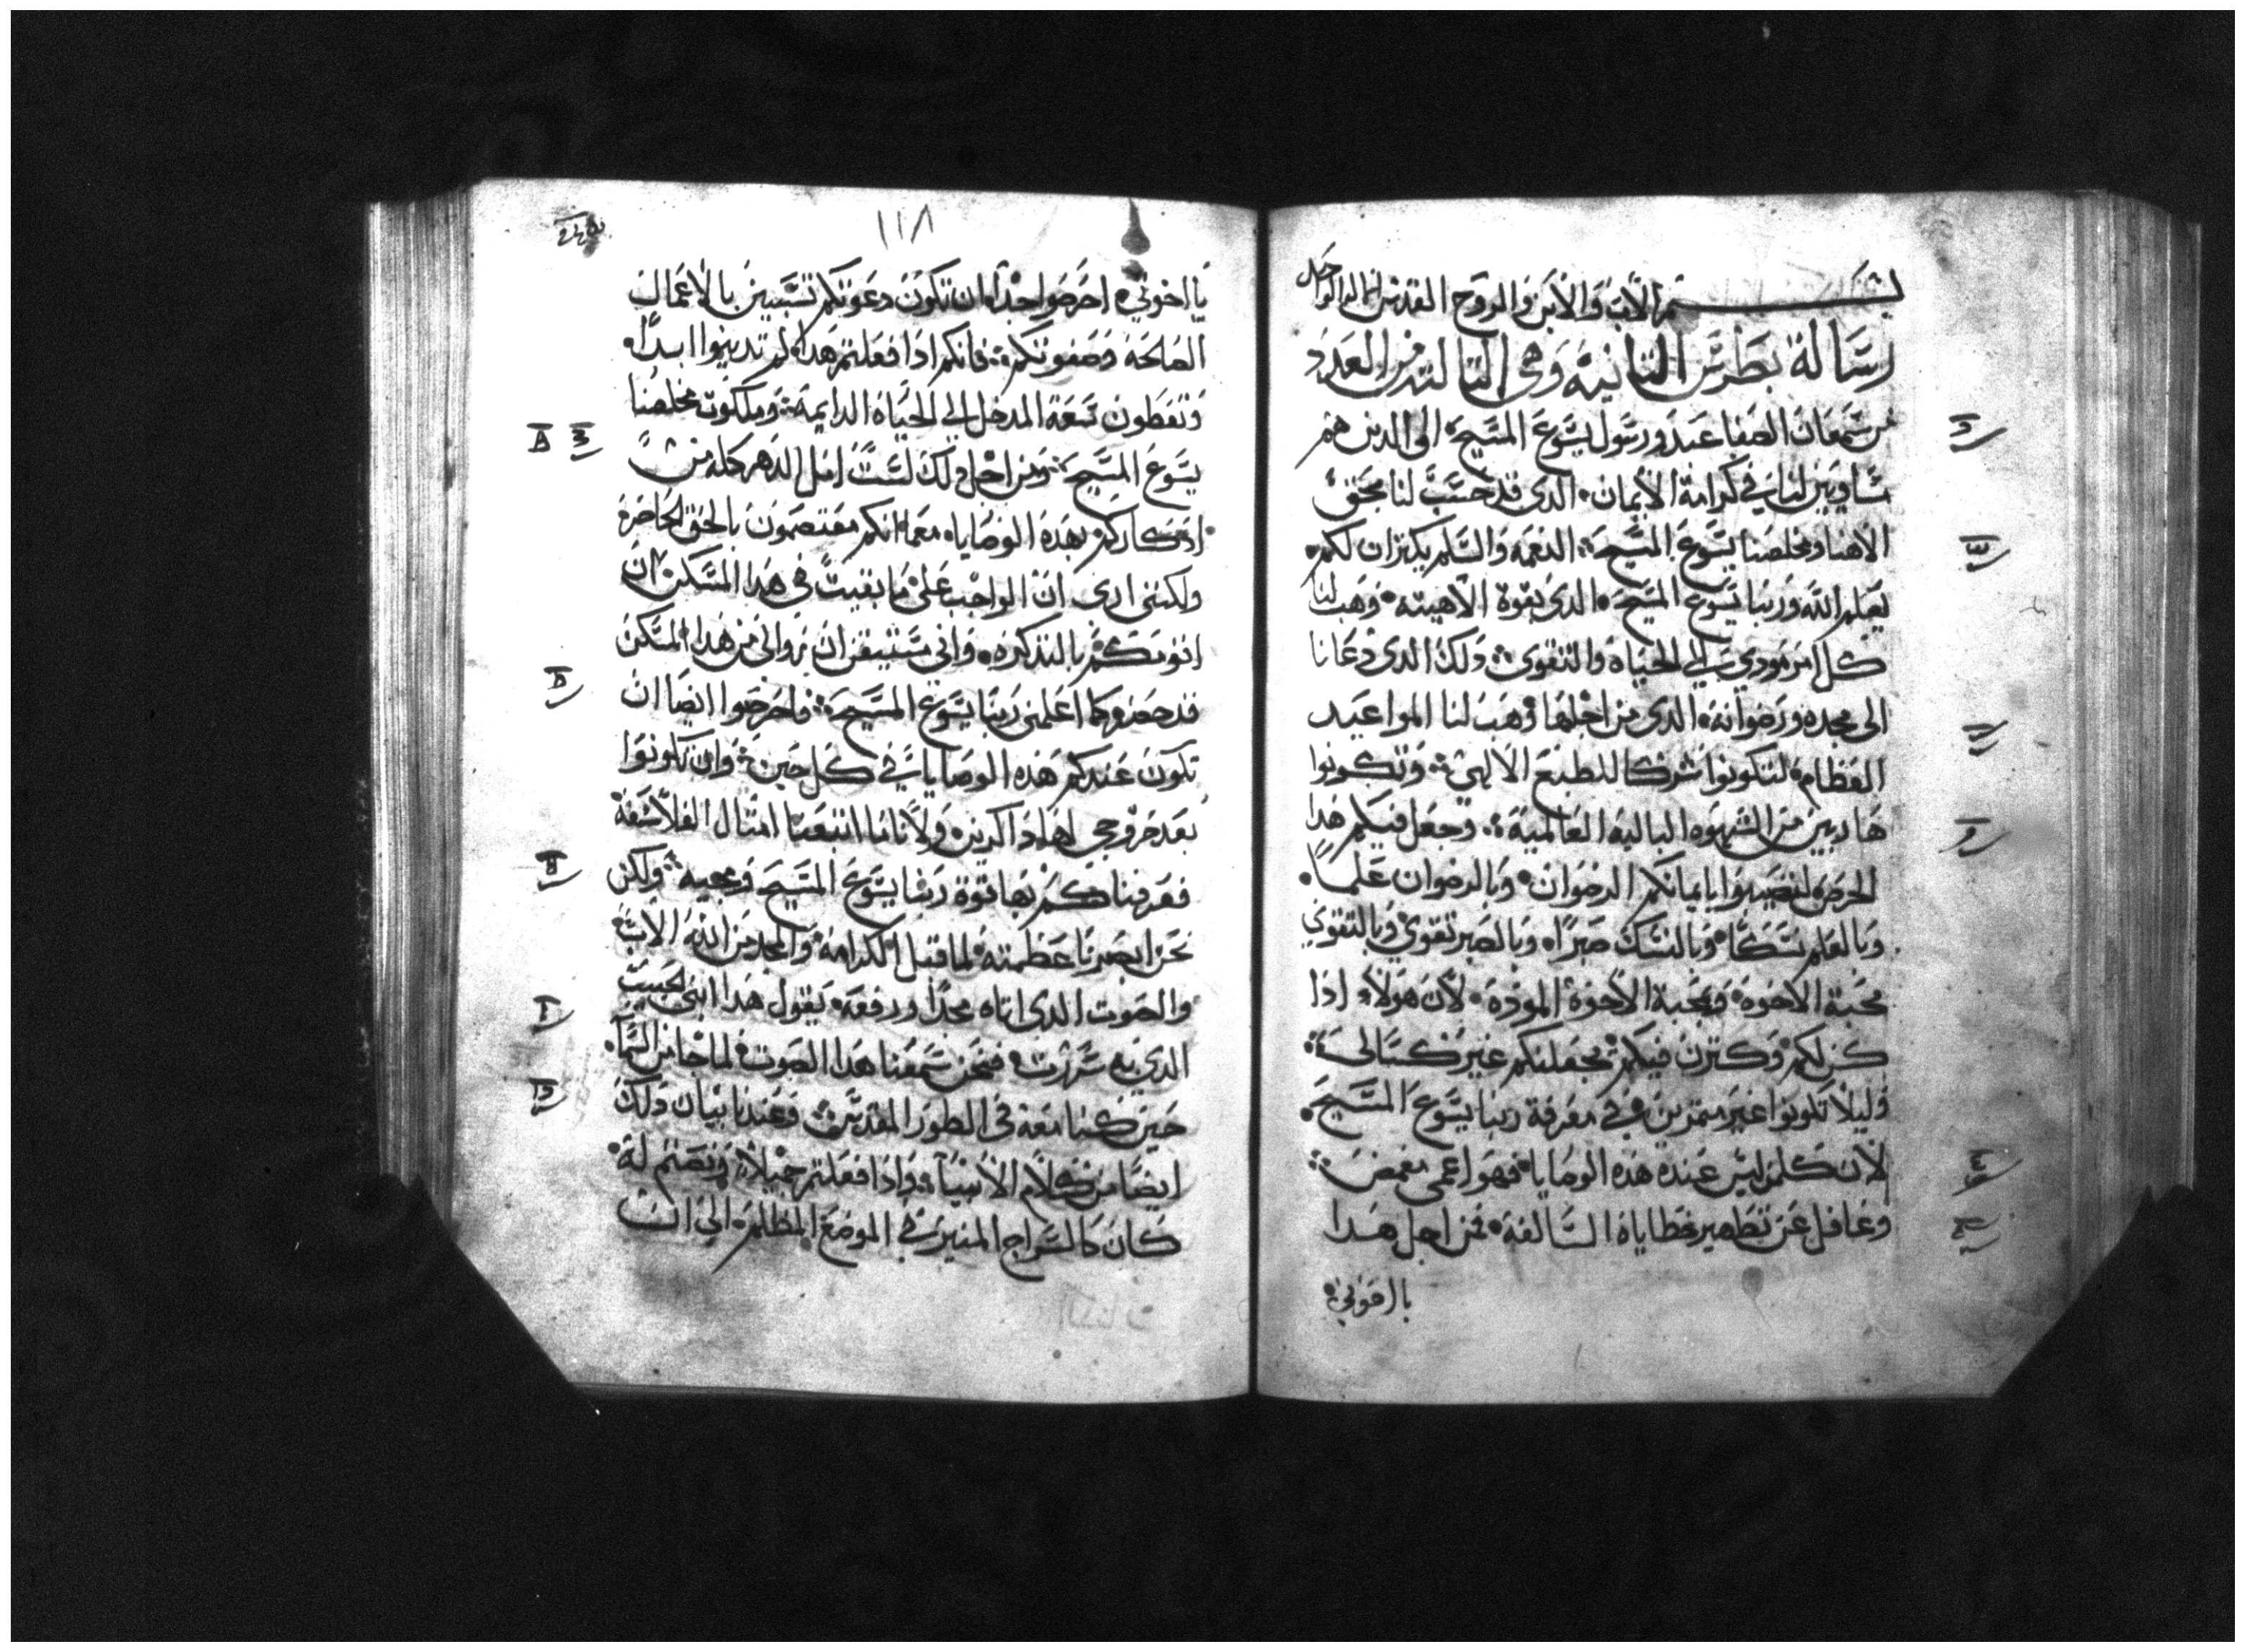 بسم الاب والابن والروح القدس الاله الواحد
رسالة بطرس التانيه وهي التالته من العدد
من سمعان الصفا عبد ورسول يسوع المسيح الى الدين هم
مساويين لنا في كرامة الايمان الدي قد حسب لنا بحق
الاهنا ومخلصنا يسوع المسيح النعمه والسلم يكتران لكم
بعلم الله وربنا يسوع المسيح الدي بقوة الاهيته وهب لنا
كل امر مودي الى الحياه والتقوى دلك الدي دعانا
الى مجده ورضوانه الدي من اجلها وهب لنا المواعيد
العظام لتكونوا شركا للطبع الالهي وتكونوا
هاربين من الشهوه الباليه العالميه وجعل فيكم هدا
الحرص لتصيروا بايمانكم الرضوان وبالرضوان علما
وبالعلم نسكا وبالنسك صبرا وبالصبر تقوى وبالتقوي
محبة الاخوه وبمحبة الاخوة الموده لان هولاء ادا
كن لكم وكترن فيكم يجعلنكم غير كسالى
وليلا تكونوا غير متمرين في معرفة ربنا يسوع المسيح
لان كلمن ليس عنده هده الوصايا فهو اعمى مغمض
وغافل عن تطهير خطاياه السالفه فمن اجل هدا
يا اخوتي
١١٨
يا اخوتي احرصوا جدا ان تكون دعوتكم تستبين بالاعمال
الصالحه وصفوتكم فانكم ادا فعلتم هدا لم تدينوا ابدا
وتعطون سعة المدخل الى الحياه الدايمه وملكوت مخلصنا
يسوع المسيح ومن اجل دلك لست امل الدهر كله من
ادكاركم بهده الوصايا معما انكم معتصمون بالحق الحاضره
ولكنني ارى ان الواجب علي ما بقيت في هدا المسكن ان
انومكم بالتدكره واني مستيقن ان زوالي من هدا المسكن
قد حضر كما اعلمني ربنا يسوع المسيح فاحرصوا ايضا ان
تكون عندكم هده الوصايا في كل حين وان تكونوا
بعد خروجي لها داكرين ولاناما اتبعنا امتال الفلاسفة
فعرفناكم بها قوة ربنا يسوع المسيح ومجيه ولكن
نحن ابصرنا عظمته لما قبل الكرامه والمجد من الله الاب
والصوت الدي اتاه مجدا ورفعه يقول هدا ابني الحبيب
الدي به سررت فنحن سمعنا هدا الصوت لما جا من السما
حين كنا معه في الطور المقدس وعندنا بيان دلك
ايضا من كلام الانبياء وادا فعلتم جميلا ونصتم له
كان كالسراج المنير في الموضع المظلم الى ان